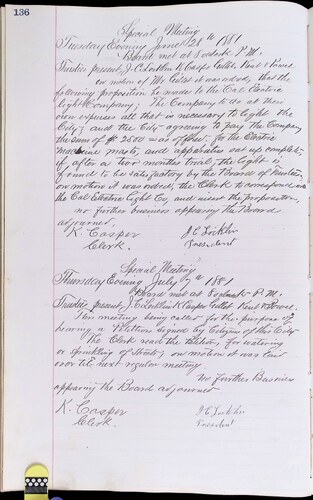 136
Special Meeting
Tuesday Evening June 28th 1881
Board met at 8 oclock P.M.
Trustees present, J. C. Locklin K. Casper Gillet, Kent &
on motion of Mr Gillet it was orded, that the
following proposition be made to the Cal Electric
Light Company; The Company to do at their
own expenses all that is necessary to light the
City; and the City agreeing to pay the Company
the sum of $3500 for the Electric
machine masts, and apparatus set up complete
if, after a two months trial, the light is
found to be satisfactory by the Board of Trustees,
on motion it was orded, the Clerk to correspond with
the Cal Electric Light Co, and the proposition,
no further business appearing the Board
adjourned
K. Casper
Clerk.
J. C. Locklin
President
Special Meeting
Thursday Evening July 7th 1881
Board met at 8 oclock P.M.
Trustees present, J. C. Locklin K. Casper Gillet Kent &
This meeting being called for the purpose of
hearing a Petition signed by Citizens of this City
The Clerk read the Petition, for watering
or sprinkling of Streets, on motion it was laid
over til next regular meeting
No further Business
appearing the Board adjourned
K. Casper
Clerk.
J. C. Locklin
President